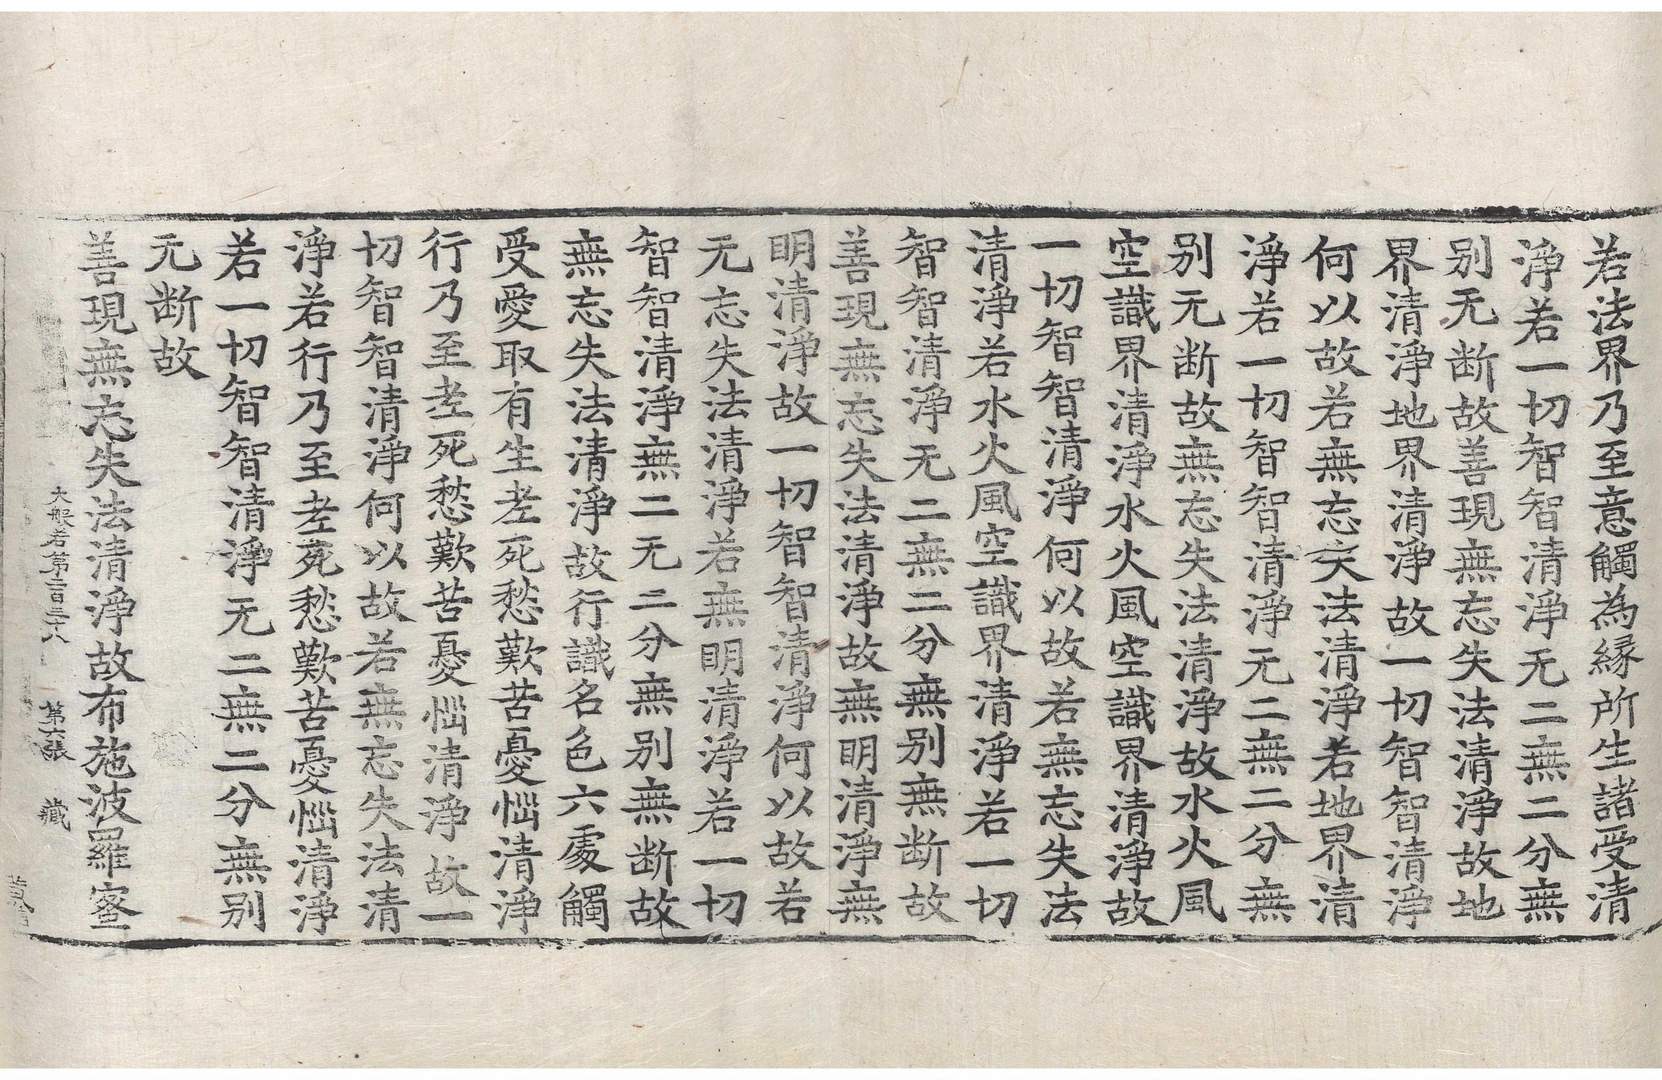 若法界乃至意觸為縁所生諸受清
淨若一切智智清淨无二無二分無
别无断故善現無忘失法清淨故地
界清淨地界清淨故一切智智清淨
何以故若無忘失法清淨若地界清
淨若一切智智清淨无二無二分無
别无断故無忘失法清淨故水火風
空識界清淨水火風空識界清淨故
一切智智清淨何以故若無忘失法
清淨若水火風空識界清淨若一切
智智清淨无二無二分無别無断故
善現無忘失法清淨故無明清淨無
明清淨故一切智智清淨何以故若
无忘失法清淨若無明清淨若一切
智智清淨無二无二分無别無断故
無忘失法清淨故行識名色六處觸
受愛取有生老死愁歎苦憂惱清淨
行乃至老死愁歎苦憂惱清淨故一
切智智清淨何以故若無忘失法清
淨若行乃至老死愁歎苦憂惱清淨
若一切智智清淨无二無二分無别
无断故
善現無忘失法清淨故布施波羅蜜
大般若第二百三十八 第六張 藏